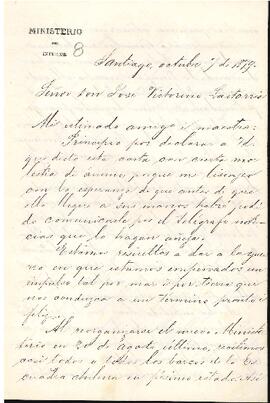 MINISTERIO
DEL
INTERIOR
8
Santiago, octubre 7 de 1879.
Señor don José Victorino Lastarria
Mi estimado amigo i maestro:
Principio por declarar a Ud.
que dicto esta carta con cierta mo-
lestia de ánimo, porque me lisonjeo
con la esperanza de que antes de que
ella llegue a sus manos habré podi-
do comunicarle por el telégrafo noti-
cias que la hagan añeja.
Estamos resueltos a dar a la gue-
rra en que estamos empeñados un
impulso tal por mar i por tierra que
nos conduzca a un término pronto i
feliz.
Al reorganizarse el nuevo Minis-
terio en 20 de Agosto último, recibimos
casi todos los barcos de la Es-
cuadra chilena en pésimo estado. Así